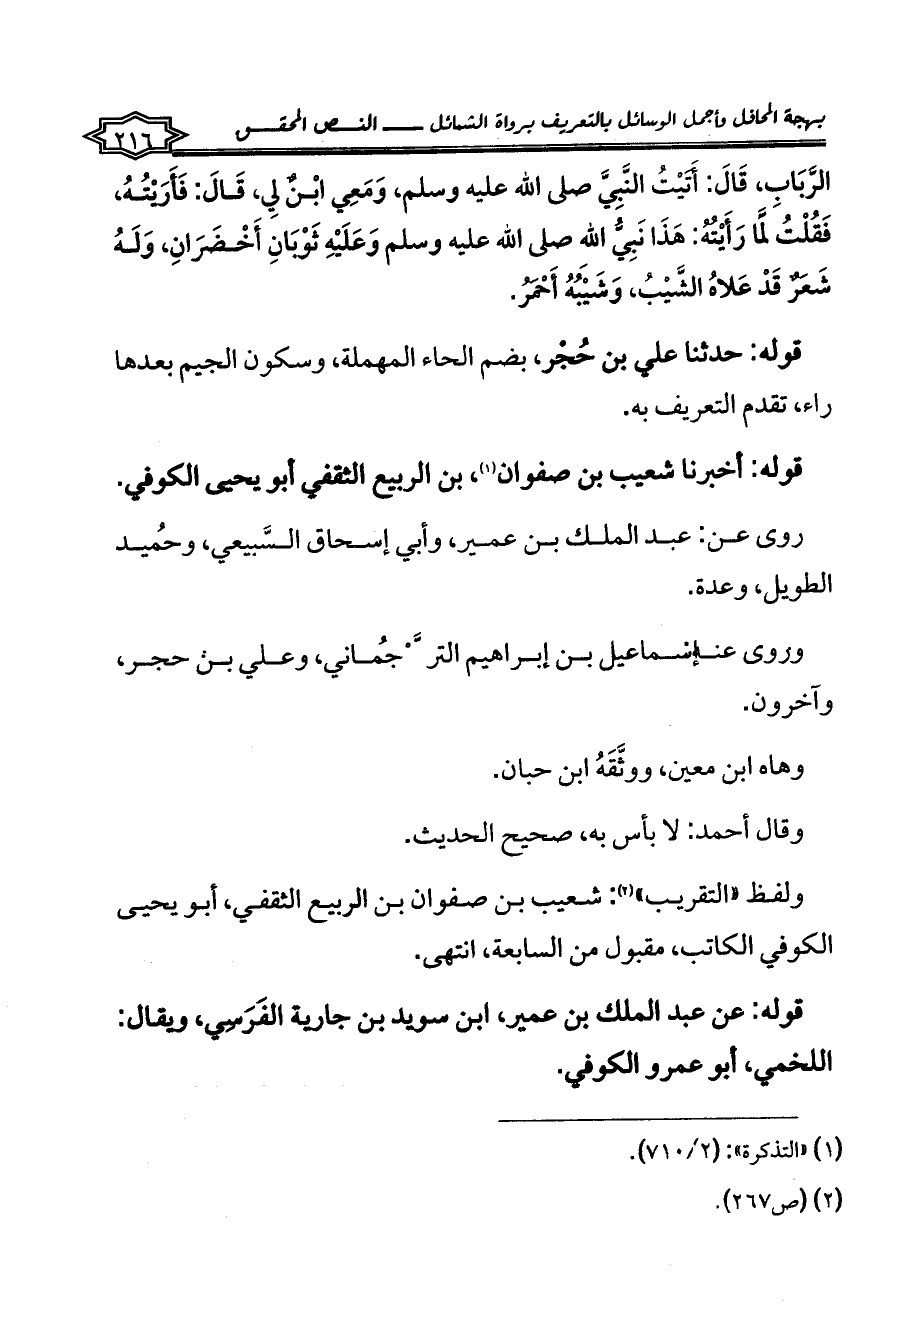 بهجة المحافل وأجمل الوسائل بالتعريف برواة الشمائل ــــ النـــص المحقـــق
٢١٦
الرَّبَابِ، قَالَ: أَتَيْتُ النَّبِيَّ صلى الله عليه وسلم، وَمَعِي ابْنٌ لِي، قَالَ: فَأَرَيْتُهُ،
فَقُلْتُ لَمَّا رَأَيْتُهُ: هَذَا نَبِيُّ الله صلى الله عليه وسلم وَعَلَيْهِ ثَوْبَانِ أَخْضَرَانِ، وَلَهُ
شَعَرٌ قَدْ عَلَاهُ الشَّيْبُ، وَشَيْبُهُ أَحْمَرُ.
قوله: حدثنا علي بن حُجْر، بضم الحاء المهملة، وسكون الجيم بعدها
راء، تقدم التعريف به.
قوله: أخبرنا شعيب بن صفوان(١)، بن الربيع الثقفي أبو يحيى الكوفي.
روى عن: عبد الملك بن عمير، وأبي إسحاق السَّبيعي، وحُميد
الطويل، وعدة.
وروى عنه إسماعيل بن إبراهيم التر َّ ْجُماني، وعلي بن حجر،
وآخرون.
وهاه ابن معين، ووثَّقَهُ ابن حبان.
وقال أحمد: لا بأس به، صحيح الحديث.
ولفظ «التقريب»(٢): شعيب بن صفوان بن الربيع الثقفي، أبو يحيى
الكوفي الكاتب، مقبول من السابعة، انتهى.
قوله: عن عبد الملك بن عمير، ابن سويد بن جارية الفَرَسِي، ويقال:
اللخمي، أبو عمرو الكوفي.
(١) «التذكرة»: (٧١٠/٢).
(٢) (ص٢٦٧).